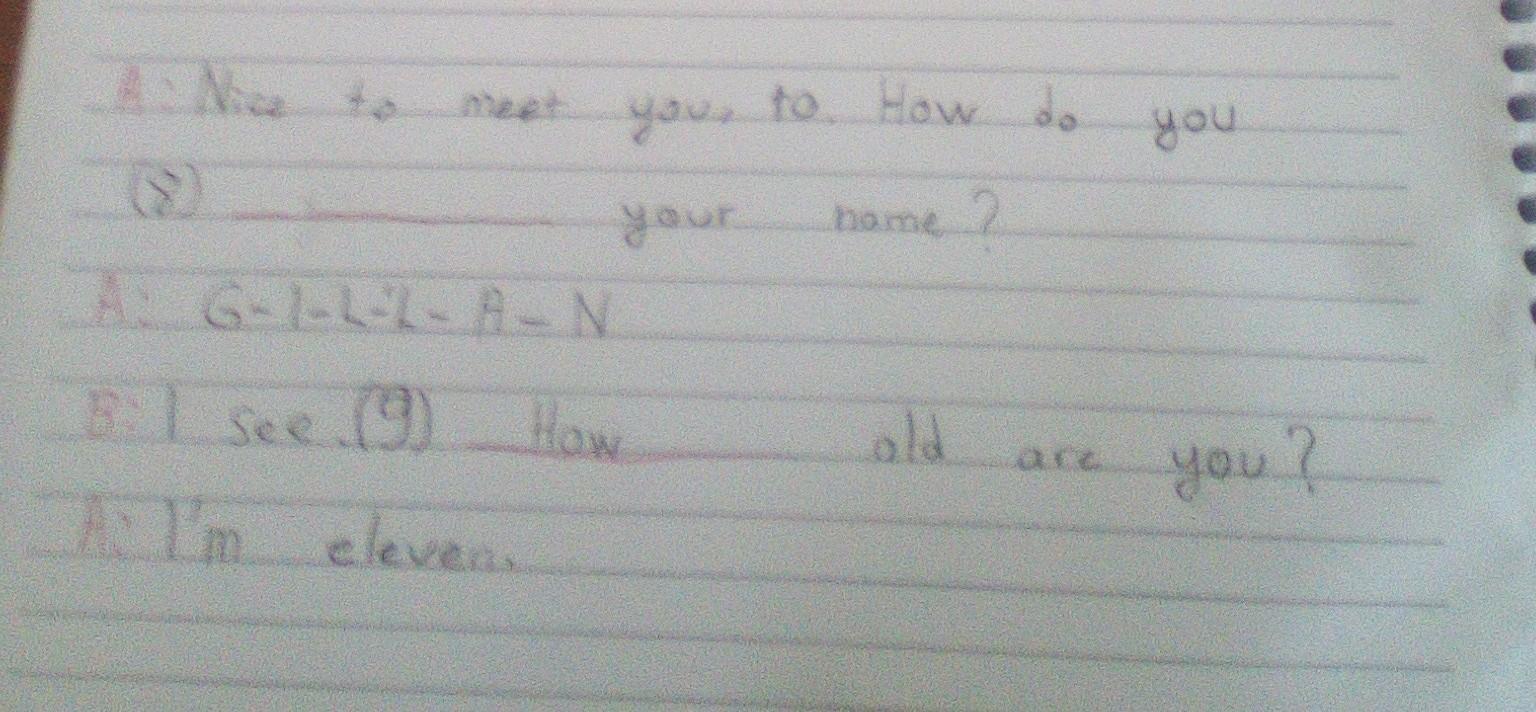 A: Nice to meet you, to. How do you
(8) __________ your name?
A: G-I-L-L-A-N
B: I see. (9) __How______ old are you?
A: I'm eleven.